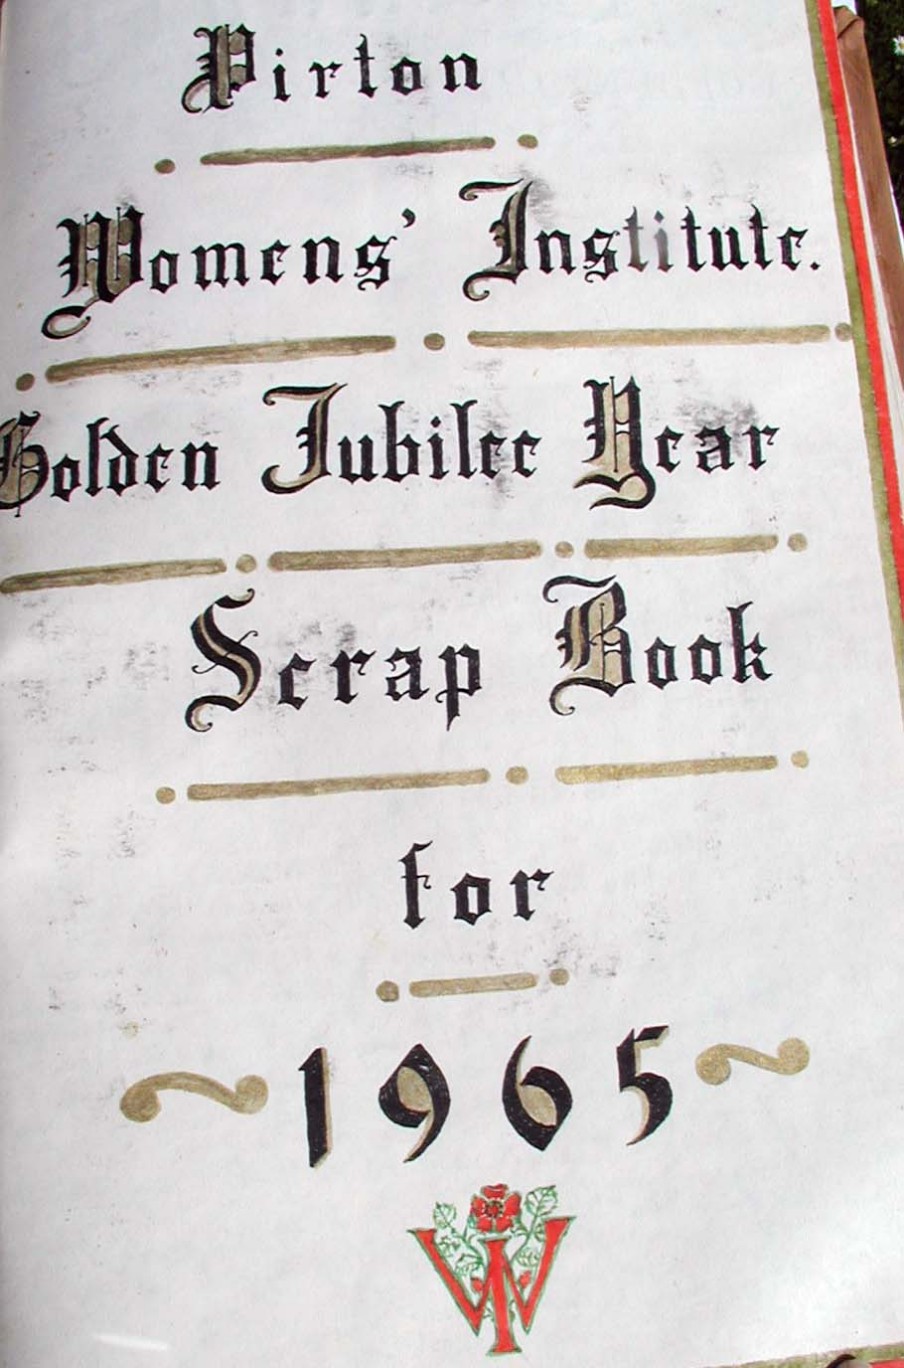 Pirton
Womens' Institute.
Golden Jubilee Year
Scrap Book
for
1965
WI